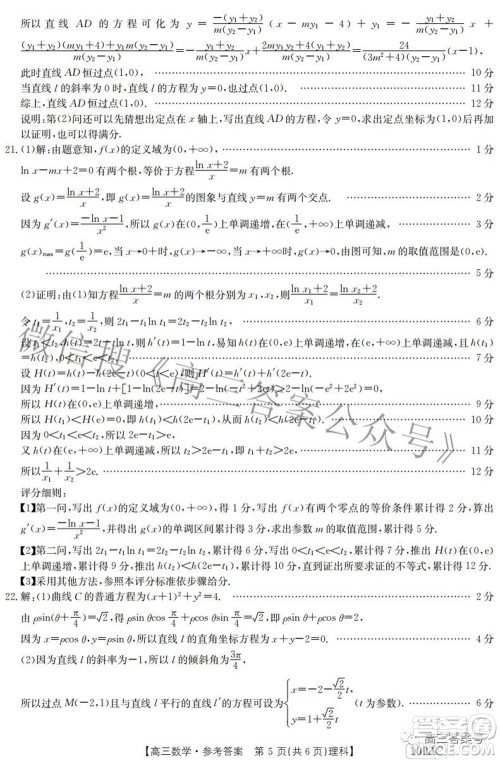 所以直线 AD 的方程可化为 y = -(y₁+y₂)/m(y₂-y₁) (x-my₁-4)+y₁ = -(y₁+y₂)/m(y₂-y₁) x +
(y₁+y₂)(my₁+4)+y₁m(y₂-y₁)/m(y₂-y₁) = -(y₁+y₂)/m(y₂-y₁) x + 2my₁y₂+4(y₁+y₂)/m(y₂-y₁) = 24/(3m²+4)(y₂-y₁) (x-1),
此时直线 AD 恒过点(1,0), 10 分
当直线 l 的斜率为 0 时,直线 l 的方程为 y=0,过点(1,0). 11 分
综上,直线 AD 恒过点(1,0). 12 分
说明:第(2)问还可以先猜想出定点在 x 轴上,写出直线 AD 的方程,令 y=0,求出定点坐标为(1,0)后再加
以证明,也可以得满分.
21.(1)解:由题意知,f(x)的定义域为(0,+∞), 1 分
ln x-mx+2=0 有两个根,等价于方程 (ln x+2)/x=m 有两个根.
设 g(x)=(ln x+2)/x,即 g(x)=(ln x+2)/x 的图象与直线 y=m 有两个交点. 2 分
因为 g′(x)=(-ln x-1)/x²,所以 g(x)在(0,1/e)上单调递增,在(1/e,+∞)上单调递减, 3 分
g(x)max=g(1/e)=e,当 x→0 时,g(x)→-∞,当 x→+∞时,g(x)→0,由图可知,m 的取值范围是(0,e).
5 分
(2)证明:由(1)知方程 (ln x+2)/x=m 的两个根分别为 x₁,x₂,则 (ln x₁+2)/x₁=(ln x₂+2)/x₂.
令 t₁=1/x₁,t₂=1/x₂,则 2t₁-t₁ln t₁=2t₂-t₂ln t₂. 6 分
设 t₁<t₂,h(t)=2t-tln t,则 h′(t)=1-ln t,易知 h(t)在(0,e)上单调递增,在(e,+∞)上单调递减,且 h(t₁)
=h(t₂),0<t₁<e<t₂. 7 分
设 H(t)=h(t)-h(2e-t),t∈(0,e),则 H′(t)=h′(t)+h′(2e-t).
因为 H′(t)=1-ln t+[1-ln(2e-t)]=2-ln[t(2e-t)]>0,
所以 H(t)在(0,e)上单调递增, 9 分
所以 H(t₁)<H(e)=0,即 h(t₁)<h(2e-t₁),从而 h(t₂)<h(2e-t₁). 10 分
因为 0<t₁<e,所以 2e-t₁>e,
又 h(t)在(e,+∞)上单调递减,所以 t₂>2e-t₁,即 t₁+t₂>2e, 11 分
所以 1/x₁+1/x₂>2e. 12 分
评分细则:
【1】第一问,写出 f(x)的定义域为(0,+∞),得 1 分,写出 f(x)有两个零点的等价条件累计得 2 分,算出
g′(x)=(-ln x-1)/x²,并得出 g(x)的单调区间累计得 3 分,求出参数 m 的取值范围,累计得 5 分.
【2】第二问,写出 2t₁-t₁ln t₁=2t₂-t₂ln t₂,累计得 6 分,写出 0<t₁<e<t₂,累计得 7 分,推出 H(t)在(0,e)
上单调递增,累计得 9 分,推出 h(t₂)<h(2e-t₁),累计得 10 分,直到推出要求证的不等式,累计得 12 分.
【3】采用其他方法,参考本评分标准依步骤给分.
22.解:(1)曲线 C 的普通方程为(x+1)²+y²=4. 2 分
由 ρsin(θ+π/4)=√2,得 ρsin θcos π/4+ρcos θsin π/4=√2,即 ρsin θ+ρcos θ=2,
因为 x=ρcos θ,y=ρsin θ,所以直线 l 的直角坐标方程为 x+y-2=0. 4 分
(2)因为直线 l 的斜率为-1,所以 l 的倾斜角为 3π/4,
所以过点 M(-2,1)且与直线 l 平行的直线 l′的方程为 { x=-2-√2/2 t, y=1+√2/2 t (t 为参数). 6 分
【高三数学·参考答案 第 5 页(共 6 页)理科】
微信搜《高三答案公众号》
高三答案号